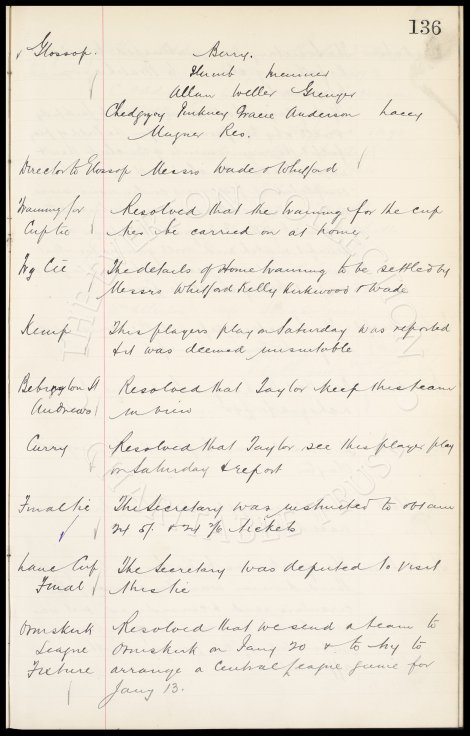 136
Glossop. Berry.
Thumb
Allan Weller Grenyer
Chedgzoy Pinkney Gracie Anderson Lacey
Magner Res.
Director to Glossop Messrs Wade & Whitford
Training for Resolved that the training for the cup
Cup tie ties be carried on at home
Trg Cie The details of Home training to be settled by
Messrs Whitford Kelly Kirkwood & Wade
Kemp This players play on Saturday was reported
& it was deemed unsuitable
St Resolved that Taylor keep this team
Andrews in view
Curry Resolved that Taylor see this player play
on Saturday & report
Final tie The Secretary was instructed to obtain
24 5/- & 24 2/6 tickets
Lanc Cup The Secretary was deputed to visit
Final this tie
Ormskirk Resolved that we send a team to
League Ormskirk on Jany 20 & to try to
Fixture arrange a Central League game for
Jany 13.
THE EVERTON COLLECTION